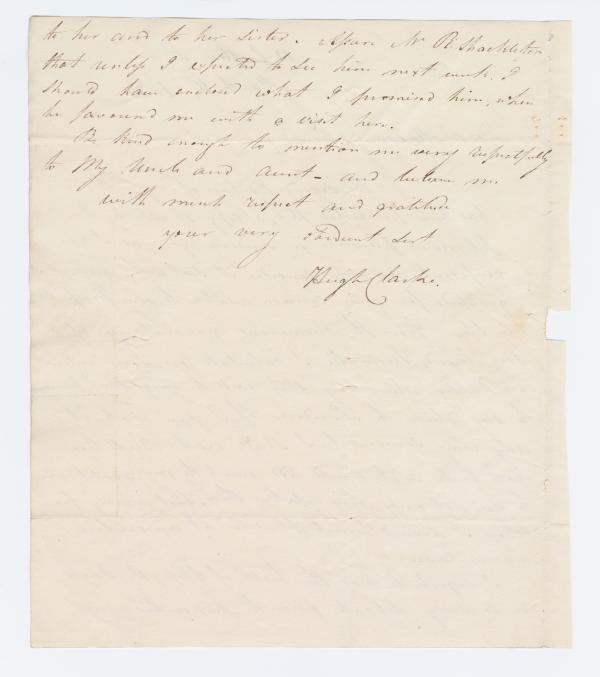 to her and to her Sister. Assure Mr R. Shackleton
that unless I expected to see him next week. I
should have enclosed what I promised him, when
he favoured me with a visit here.
Be kind enough to mention me very respectfully
to My Uncle and Aunt - and believe me
with much respect and gratitude
your very obedient Servt
Hugh Clarke.